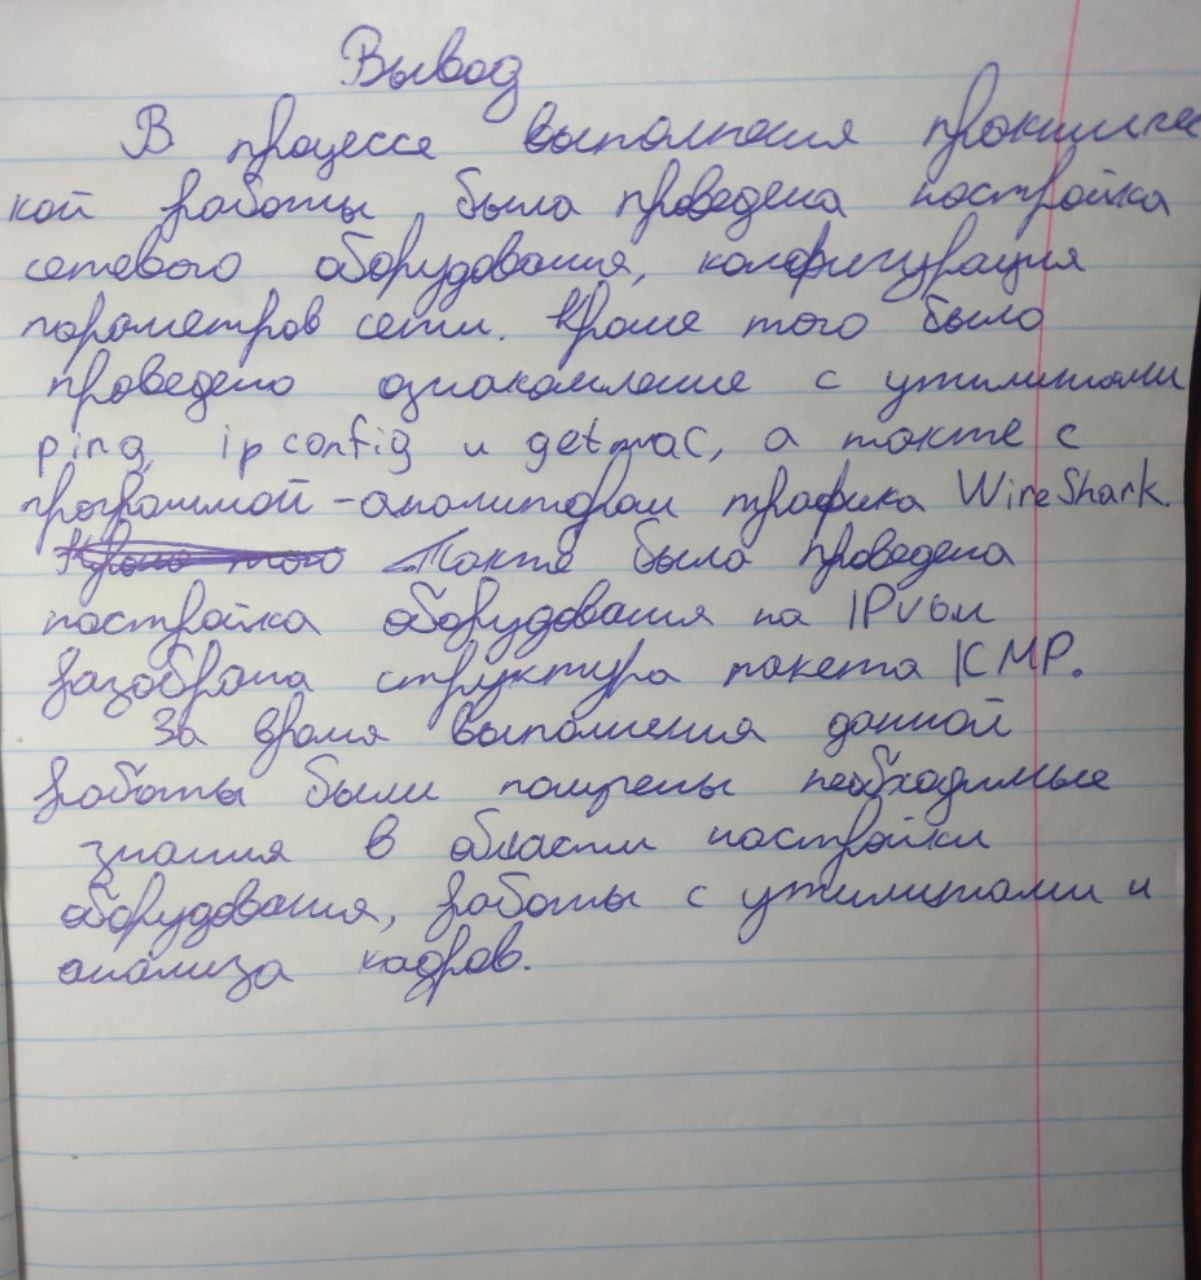 Вывод
В процессе выполнения практичес
кой работы была проведена настройка
сетевого оборудования, конфигурация
параметров сети. Кроме того было
проведено ознакомление с утилитами
ping, ipconfig и getmac, а также с
программой-анализатором трафика WireShark.
Кроме того Также была проведена
настройка оборудования на IPv6 и
разобрана структура пакета ICMP.
За время выполнения данной
работы были получены необходимые
знания в области настройки
оборудования, работы с утилитами и
анализа кадров.